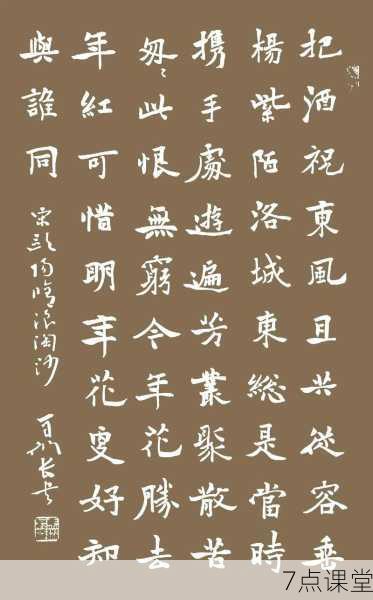 把酒祝東風且共從容垂
楊紫陌洛城東總是當時
携手處遊遍芳叢聚散苦
匆〻此恨無窮今年花勝去
年紅可惜明年花更好知
與誰同
宋歐陽脩浪淘沙
7点课堂